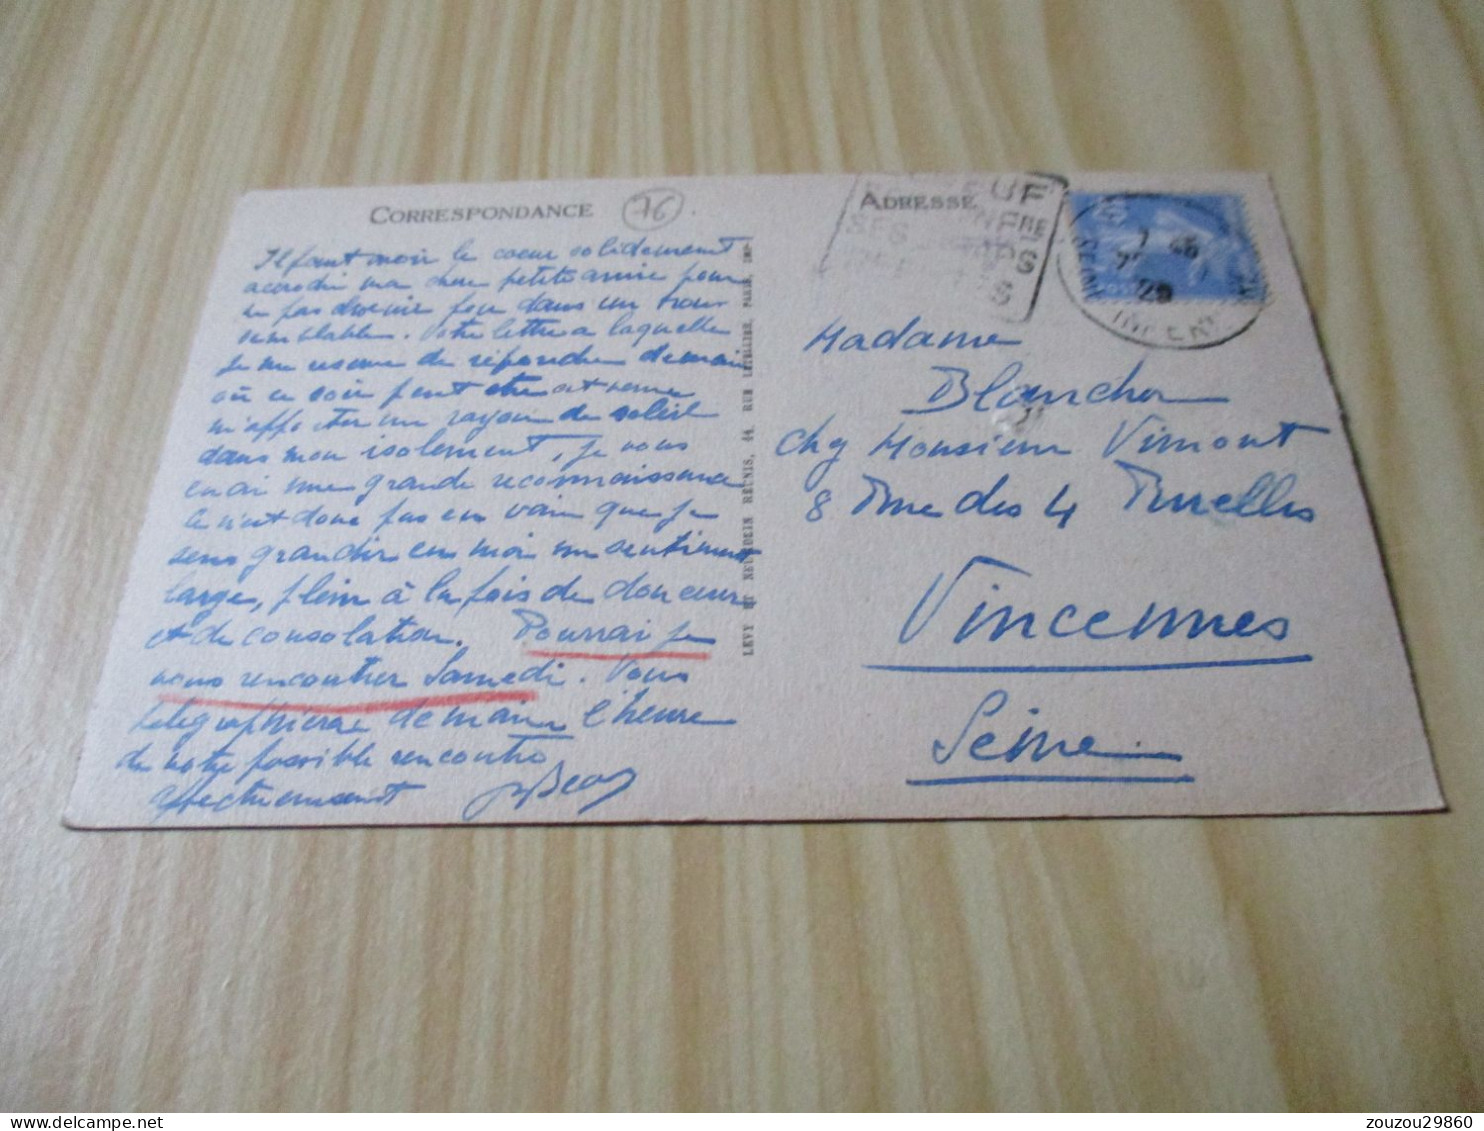 CORRESPONDANCE
76
ADRESSE
Il faut avoir le coeur solidement
accroché ma chère petite amie pour
ne pas devenir fou dans un trou
semblable. Votre lettre a laquelle
je me réserve de répondre demain
où ce soir peut etre est venue
m'apporter un rayon de soleil
dans mon isolement, je vous
en ai une grande reconnaissance
ce n'est donc pas en vain que je
sens grandir en moi un sentiment
large, plein à la fois de douceur
et de consolation. Pourrai je
vous rencontrer Samedi. Vous
telegraphierai demain l'heure
de notre possible rencontre
affectueusement
LEVY ET NEURDEIN RÉUNIS, 44, RUE LETELLIER, PARIS, IMP.
Madame
Blancher
chez Monsieur Vimont
8 Rue des 4 Ruelles
Vincennes
Seine
zouzou29860